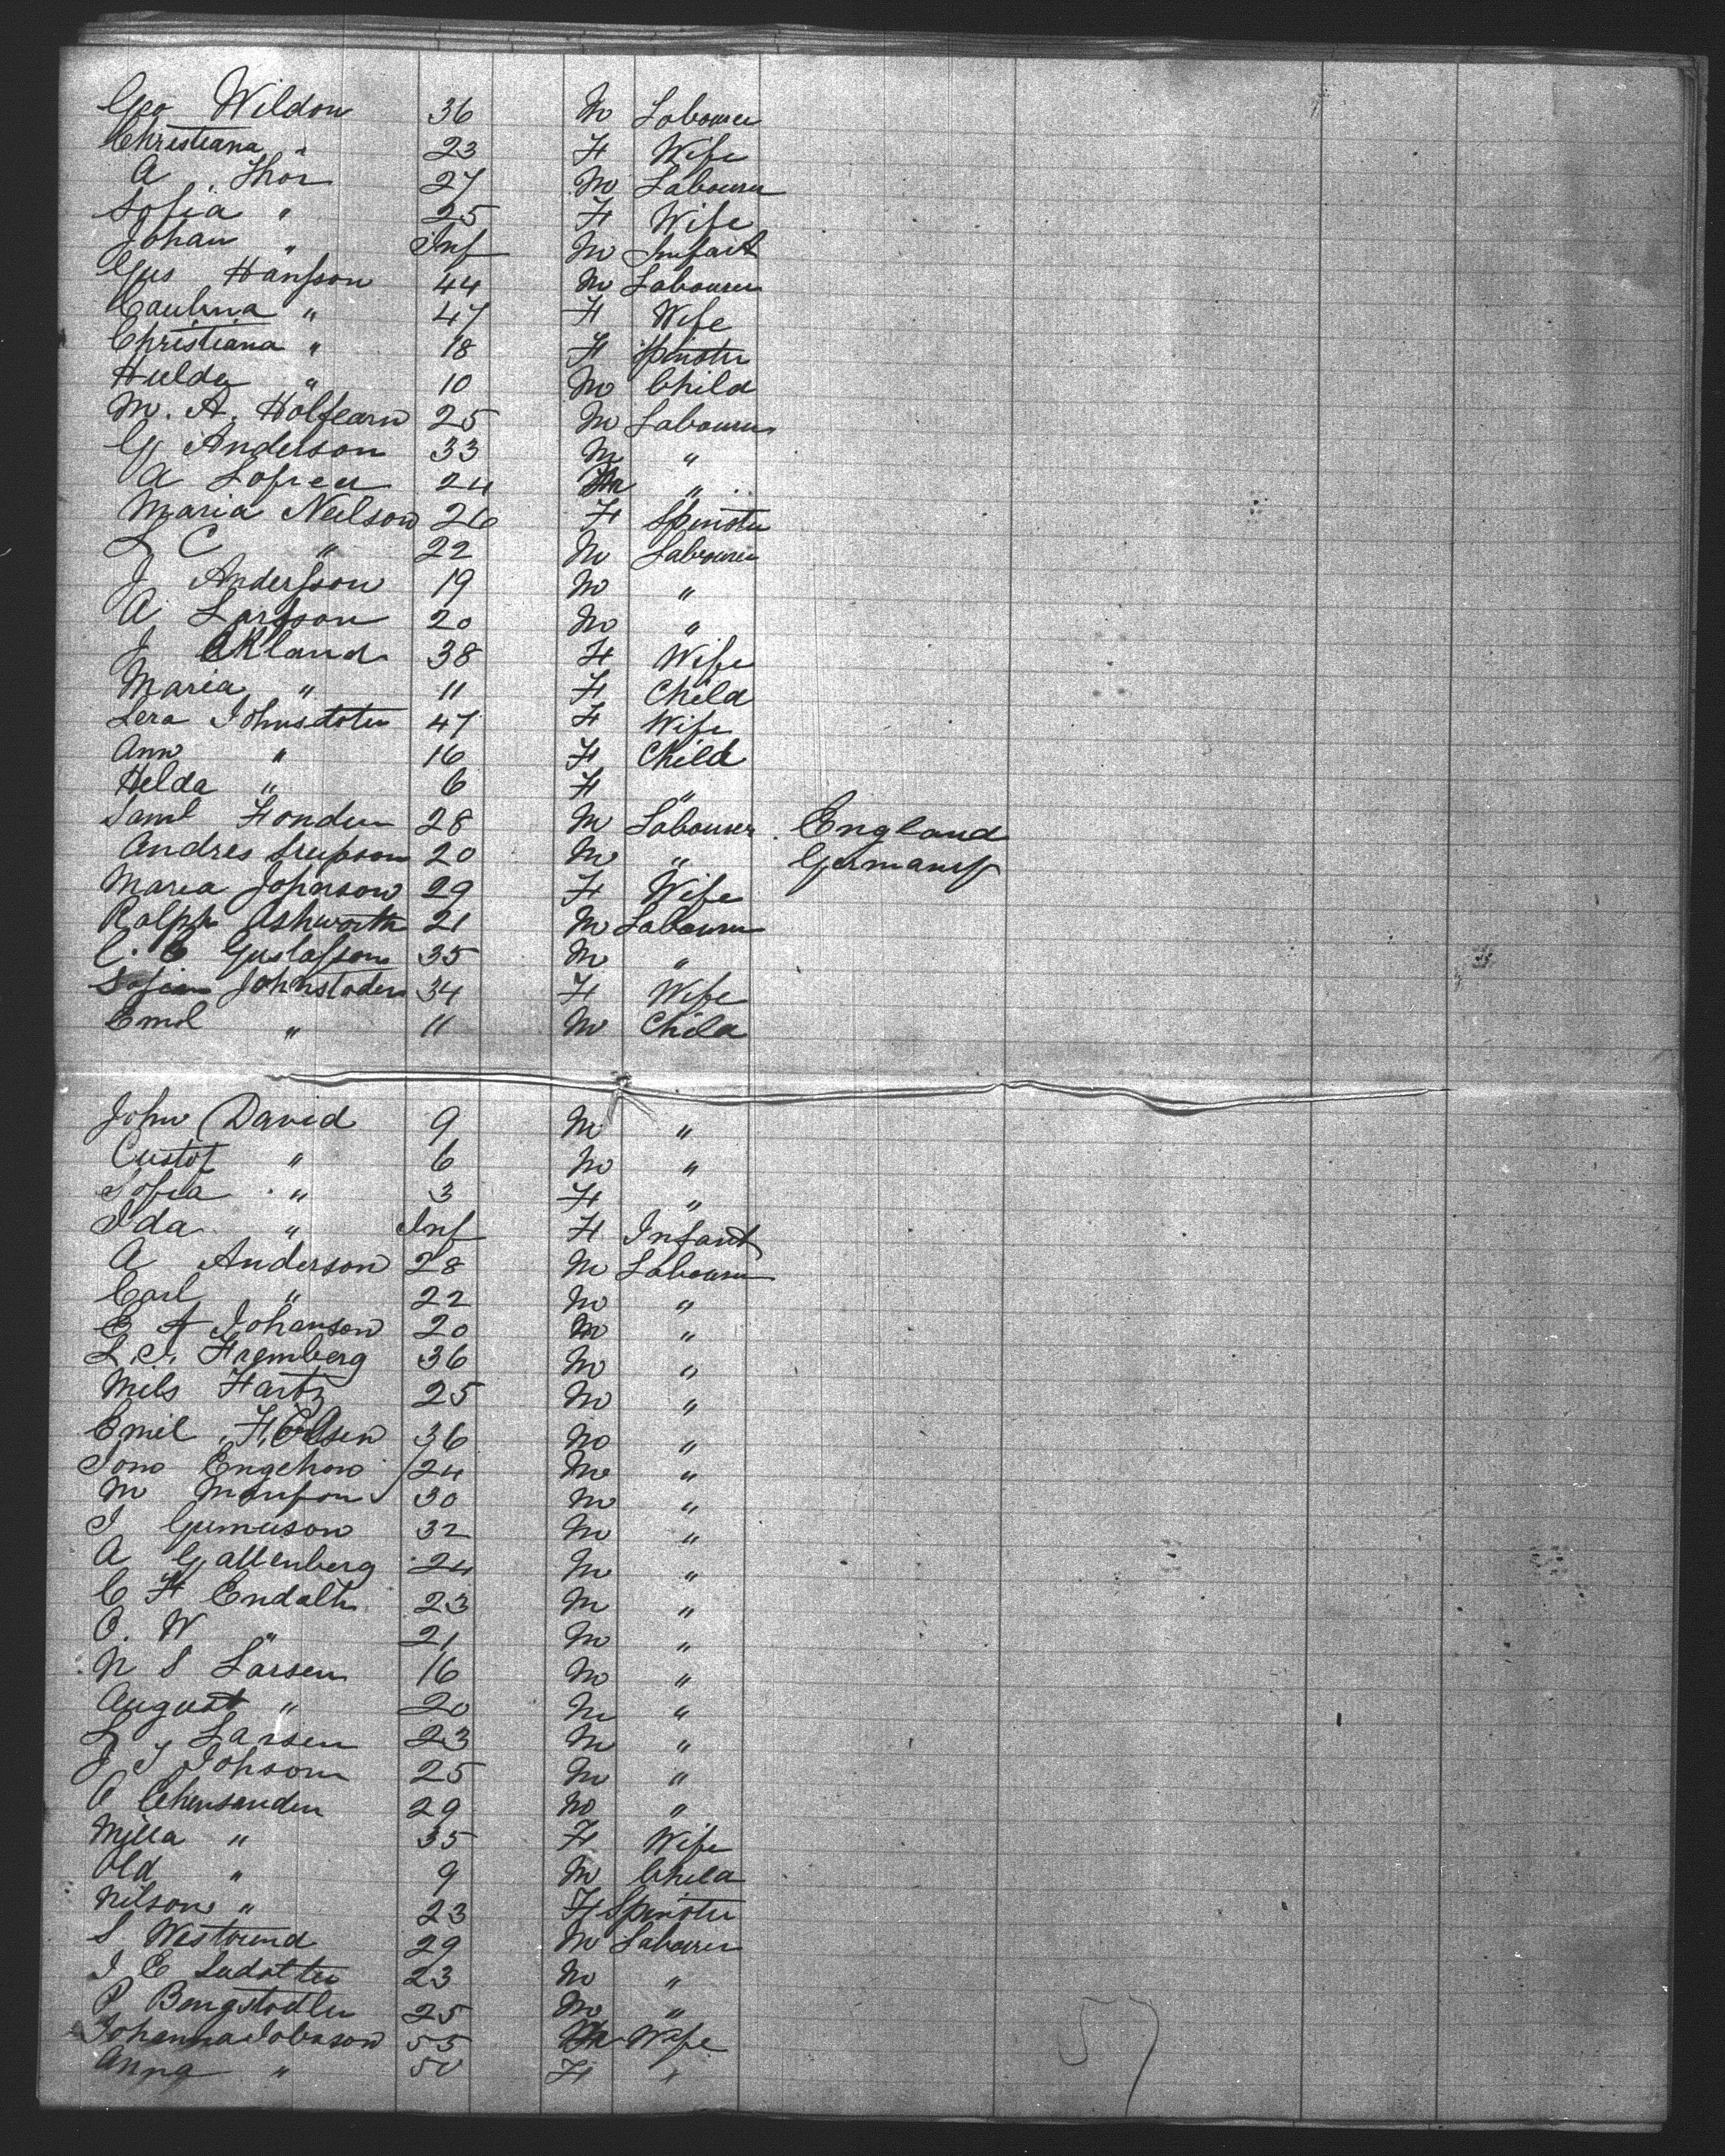 Geo Wildon 36 M Labourer
Christiana " 23 F Wife
A Thor 27 M Labourer
Sofia " 25 F Wife
Johan " Inf M Infant
Gus Hansson 44 M Labourer
Caulina " 47 F Wife
Christiana " 18 F Spinster
Hulda " 10 M Child
M. A. Holfearn 25 M Labourer
G Anderson 33 M "
A Lofren 24 M "
Maria Neilson 26 F Spinster
L C " 22 M Labourer
J Andersson 19 M "
A Larsson 20 M "
J Ekland 38 F Wife
Maria " 11 F Child
Lera Johnsdoter 47 F Wife
Ann " 16 F Child
Helda " 6 F "
Saml Fonden 28 M Labourer England
Andres 20 M " Germany
Maria Johnson 29 F Wife
Ralph Ashworth 21 M Labourer
C. Gustafsson 35 M "
Sofia Johnstoder 34 F Wife
Emil " 11 M Child
John David 9 M "
Custof " 6 M "
Sofia " 3 F "
Ida " Inf F Infant
A Anderson 28 M Labourer
Carl " 22 M "
E A Johanson 20 M "
L. J. Fremberg 36 M "
Nils Hartz 25 M "
Emil F. Olsen 36 M "
Jono Engehow 24 M "
M Monson 30 M "
J Gumerson 32 M "
A Gallenberg 24 M "
C F Endalth 23 M "
O. W " 21 M "
N S Larsen 16 M "
August " 20 M "
L Larsen 23 M "
J T Johsom 25 M "
O Chensanden 29 M "
Milla " 35 F Wife
Old " 9 M Child
Nilson " 23 F Spinster
S Westound 29 M Labourer
J E Ludotter 23 M "
P Bengstodler 25 M "
Johanna Jobnson 55 Wife
Anna " 50 F "
57